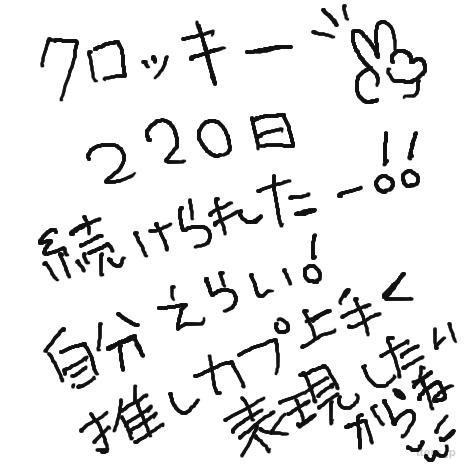 クロッキー
220日
続けられたー!!
自分えらい!
推しカプ上手く
表現したい
からね